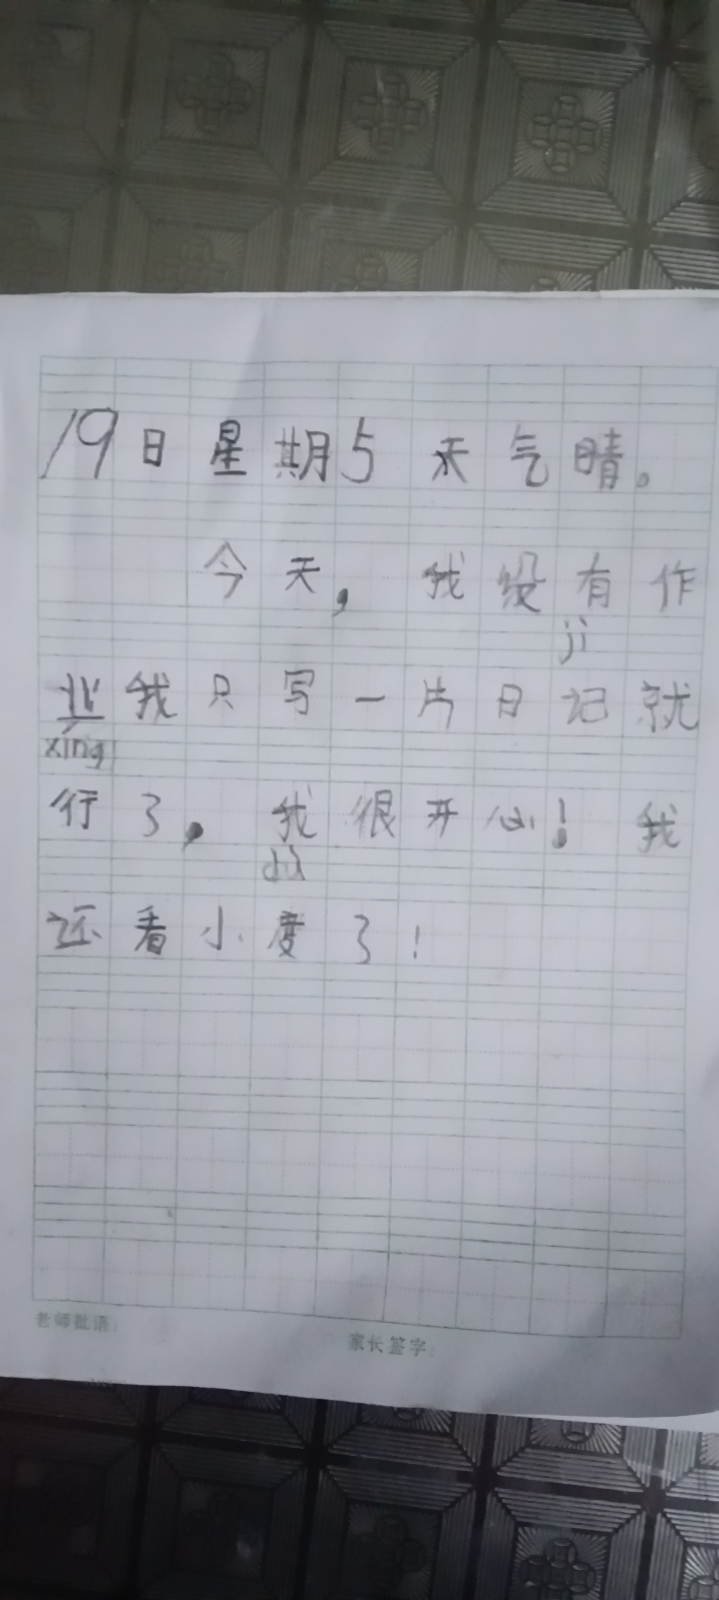 19日星期5天气晴。
今天，我没有作
jì
业我只写一片日记就
xíng
行了，我很开心！我
dù
还看小度了！
老师批语：
家长签字：